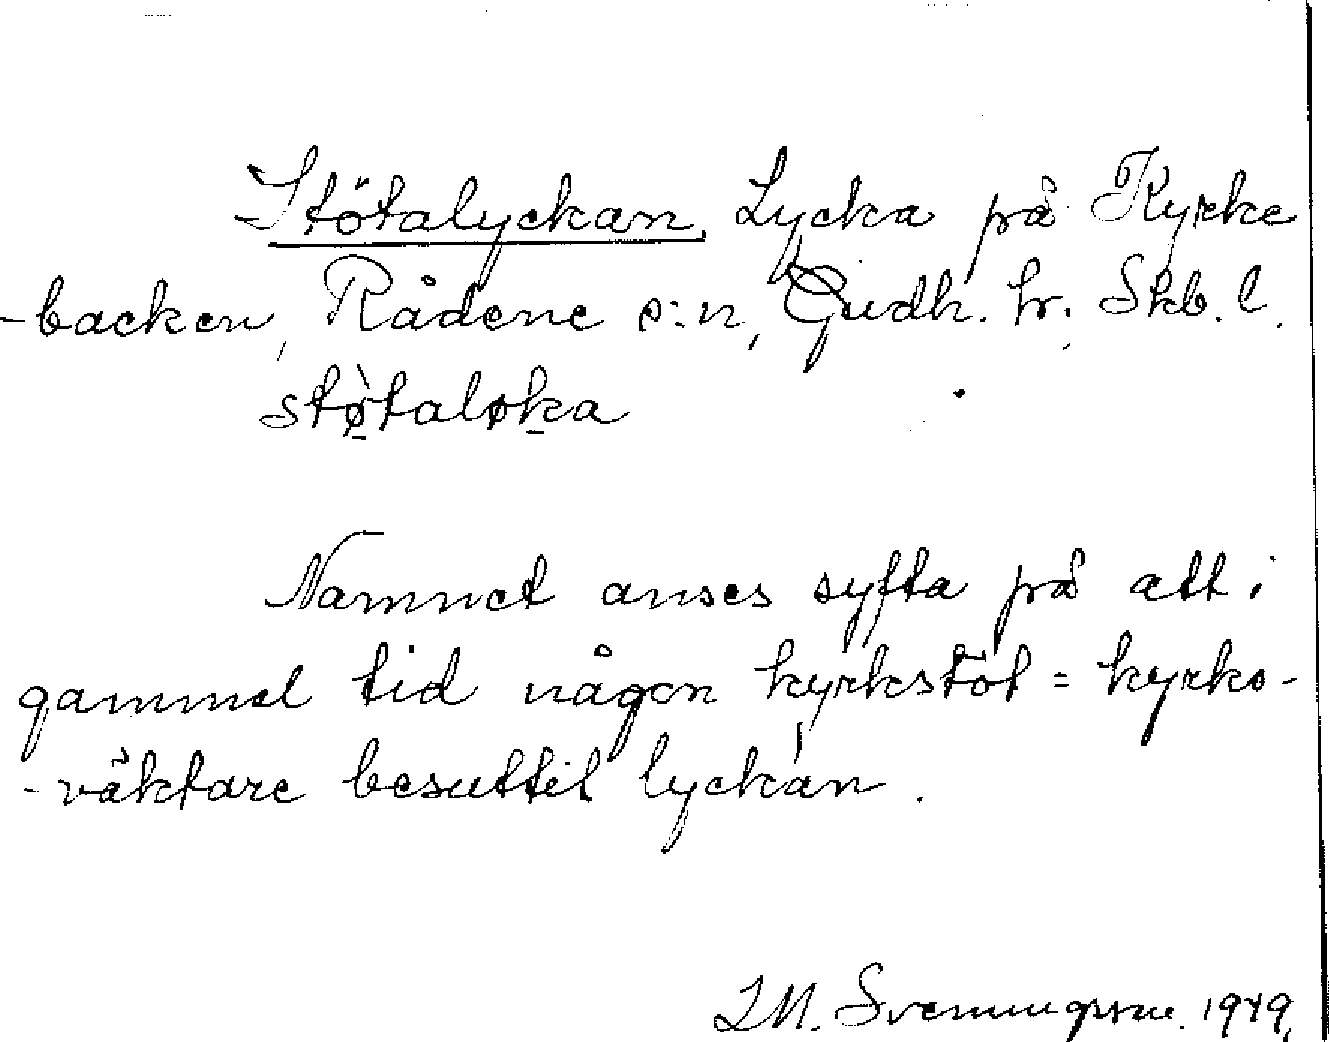 Stötalyckan, Lycka på Kyrke
-backen, Rådene s:n, Gudh. hr. Skb. l.
stø̀taløka
Namnet anses syfta på att i
gammel tid någon kyrkstöt = kyrko-
-väktare besuttit lyckan.
I M. Svenningsson. 1949.